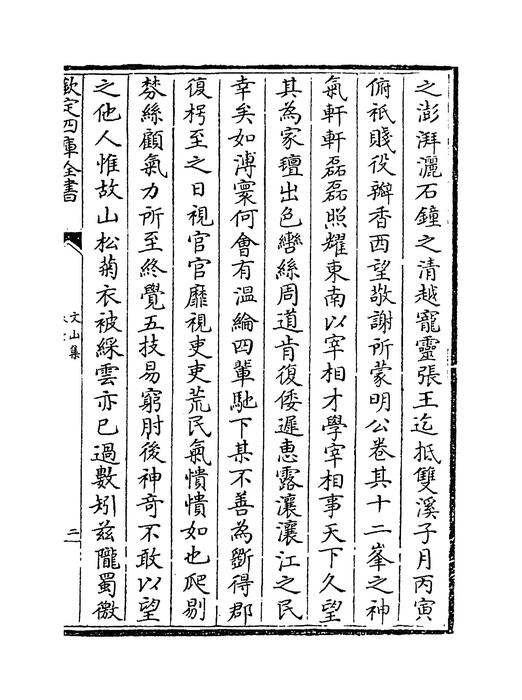 之澎湃灑石鐘之清越寵靈張王迄抵雙溪子月丙寅
俯祇賤役瓣香西望敬謝所蒙明公卷其十二峯之神
氣軒軒磊磊照耀東南以宰相才學宰相事天下久望
其為家璮出色轡絲周道肯復倭遲惠露瀼瀼江之民
幸矣如溥寰何會有温綸四輩馳下某不善為斵得郡
復樗至之日視官官靡視吏吏荒民氣憒憒如也爬剔
棼絲顧氣力所至終覺五技易窮肘後神奇不敢以望
之他人惟故山松菊衣被綵雲亦已過數矧兹隴蜀徼
欽定四庫全書
文山集
二